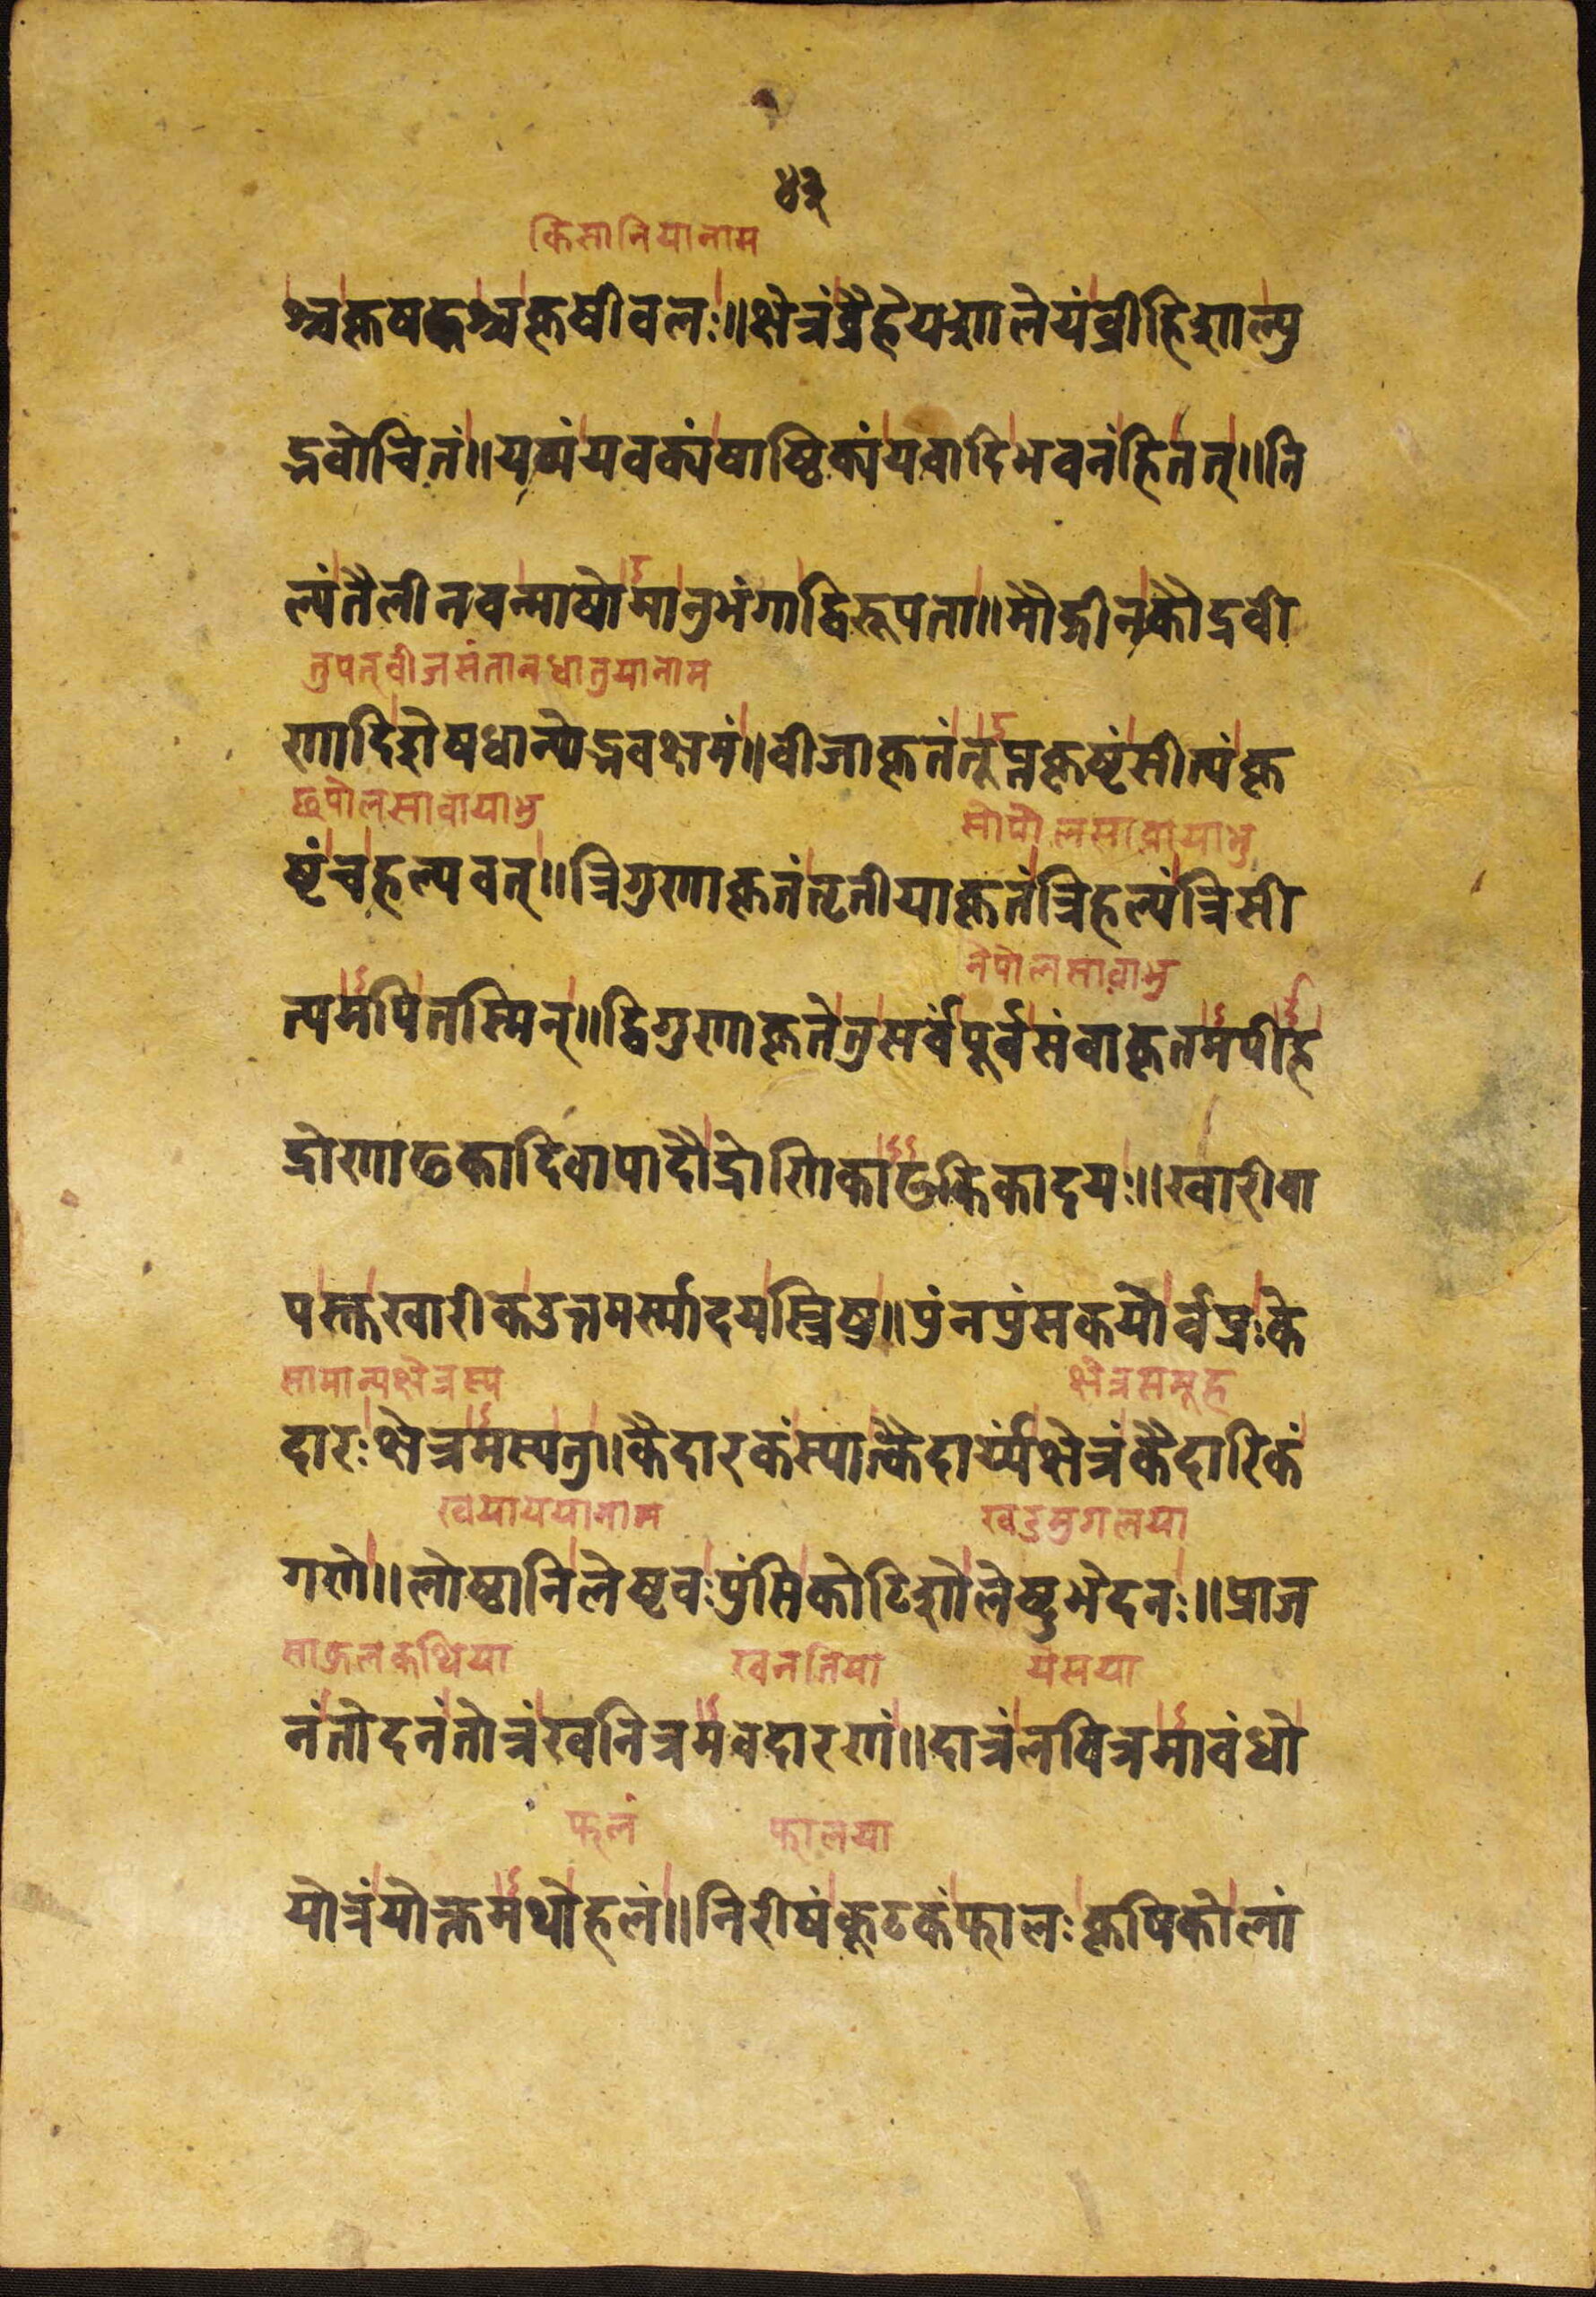 ४३
किसानियानाम
श्चकृषकश्चकृषीवलः॥क्षेत्रंव्रैहेयशालेयंव्रीहिशाल्यु
द्भवोचितं॥यव्यंयवक्यंषाष्टिक्यंयवादिभवनंहितत्॥ति
ल्यंतैलीनवन्माषोमानुभंगाद्विरूपता॥मौद्गीनकौद्रवी
तुपत्वीजसंतानधातुयानाम
णादिशेषधान्योद्भवक्षमं॥वीजाकृतंतूप्तकृष्टंसीत्यंकृ
छपोलसावायाभु
सोपोलसावायाभु
ष्टंचहल्यवत्॥त्रिगुणाकृतंतृतीयाकृतंत्रिहल्यंत्रिसी
नेपोलसावाभु
त्यमपितस्मिन्॥द्विगुणाकृतेतुसर्वंपूर्वसंवाकृतमपीह
द्रोणाढकादिवापादौद्रोणिकाढकिकादयः॥खारीवा
पस्तुखारीकउत्तमर्स्मादयस्त्रिषु॥पुंनपुंसकयोर्वप्रःके
सामान्यक्षेत्रस्य
क्षेत्रसमूह
दारःक्षेत्रमस्यतु॥कैदारकंस्यात्कैदार्य्यंक्षेत्रंकैदारिकं
खयाययानाम
खडमुगलया
गणे॥लोष्ठानिलेष्टवःपुंसिकोटिशोलेष्टुभेदनः॥प्राज
साऊलकथिया
खनतिया
यंसया
नंतोदनंतोत्रंखनित्रमवदारणं॥दात्रंलवित्रमावंधो
फलं
फालया
योत्रंयोक्तमथोहलं॥निरीषंकूटकंफालःकृषिकोलां